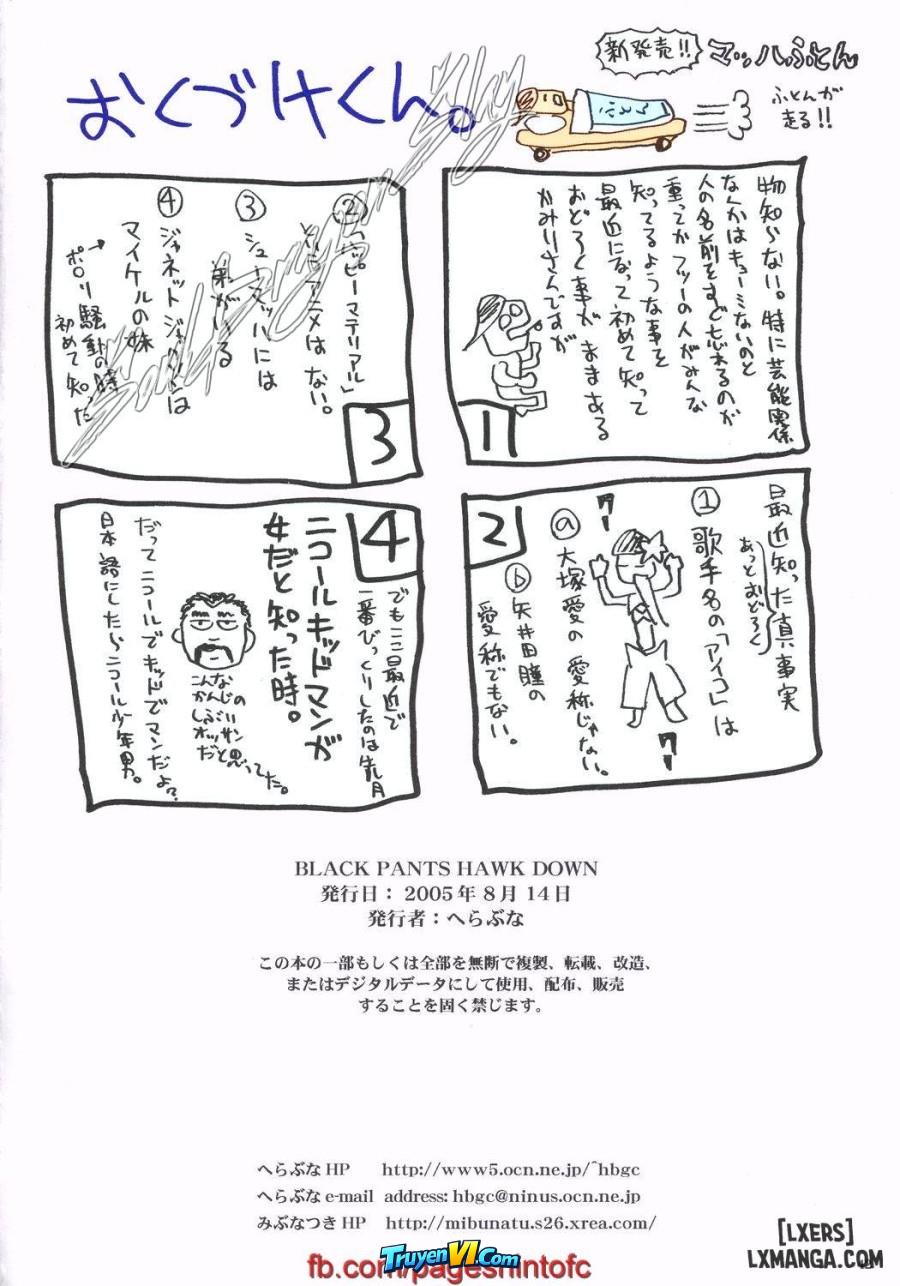 おくづけくん。
新発売!!
マッハふとん
ふとん
ふとんが
走る!!
物知らない。特に芸能関係
なんかはキョーミないのと
人の名前をすぐ忘れるのが
重ってかフツーの人がみんな
知ってるような事を
最近になって初めて知って
おどろく事がままある
かみりさんですが
1
最近知った真事実
あっとおどろく
①歌手名の「アイコ」は
ⓐ大塚愛の愛称じゃない。
ⓑ矢井田瞳の
愛称でもない。
クー
クー
2
②「ハッピーマテリアル」
というアニメはない。
③シューマッハには
弟がいる
④ジャネットジャクソンは
マイケルの妹
→ポロリ騒動の時
初めて知った
3
でもここ最近で
一番びっくりしたのは先月
ニコールキッドマンが
女だと知った時。
こんな
かんじの
しぶいオッサン
だと思ってた。
だってニコールでキッドでマンだよ?
日本語にしたらニコール少年男。
4
BLACK PANTS HAWK DOWN
発行日：2005年8月14日
発行者：へらぶな
この本の一部もしくは全部を無断で複製、転載、改造、
またはデジタルデータにして使用、配布、販売
することを固く禁じます。
へらぶな HP http://www5.ocn.ne.jp/~hbgc
へらぶな e-mail address: hbgc@ninus.ocn.ne.jp
みぶなつき HP http://mibunatu.s26.xrea.com/
[LXERS]
LXMANGA.COM
TruyenVI.Com
fb.com/pageshintofc